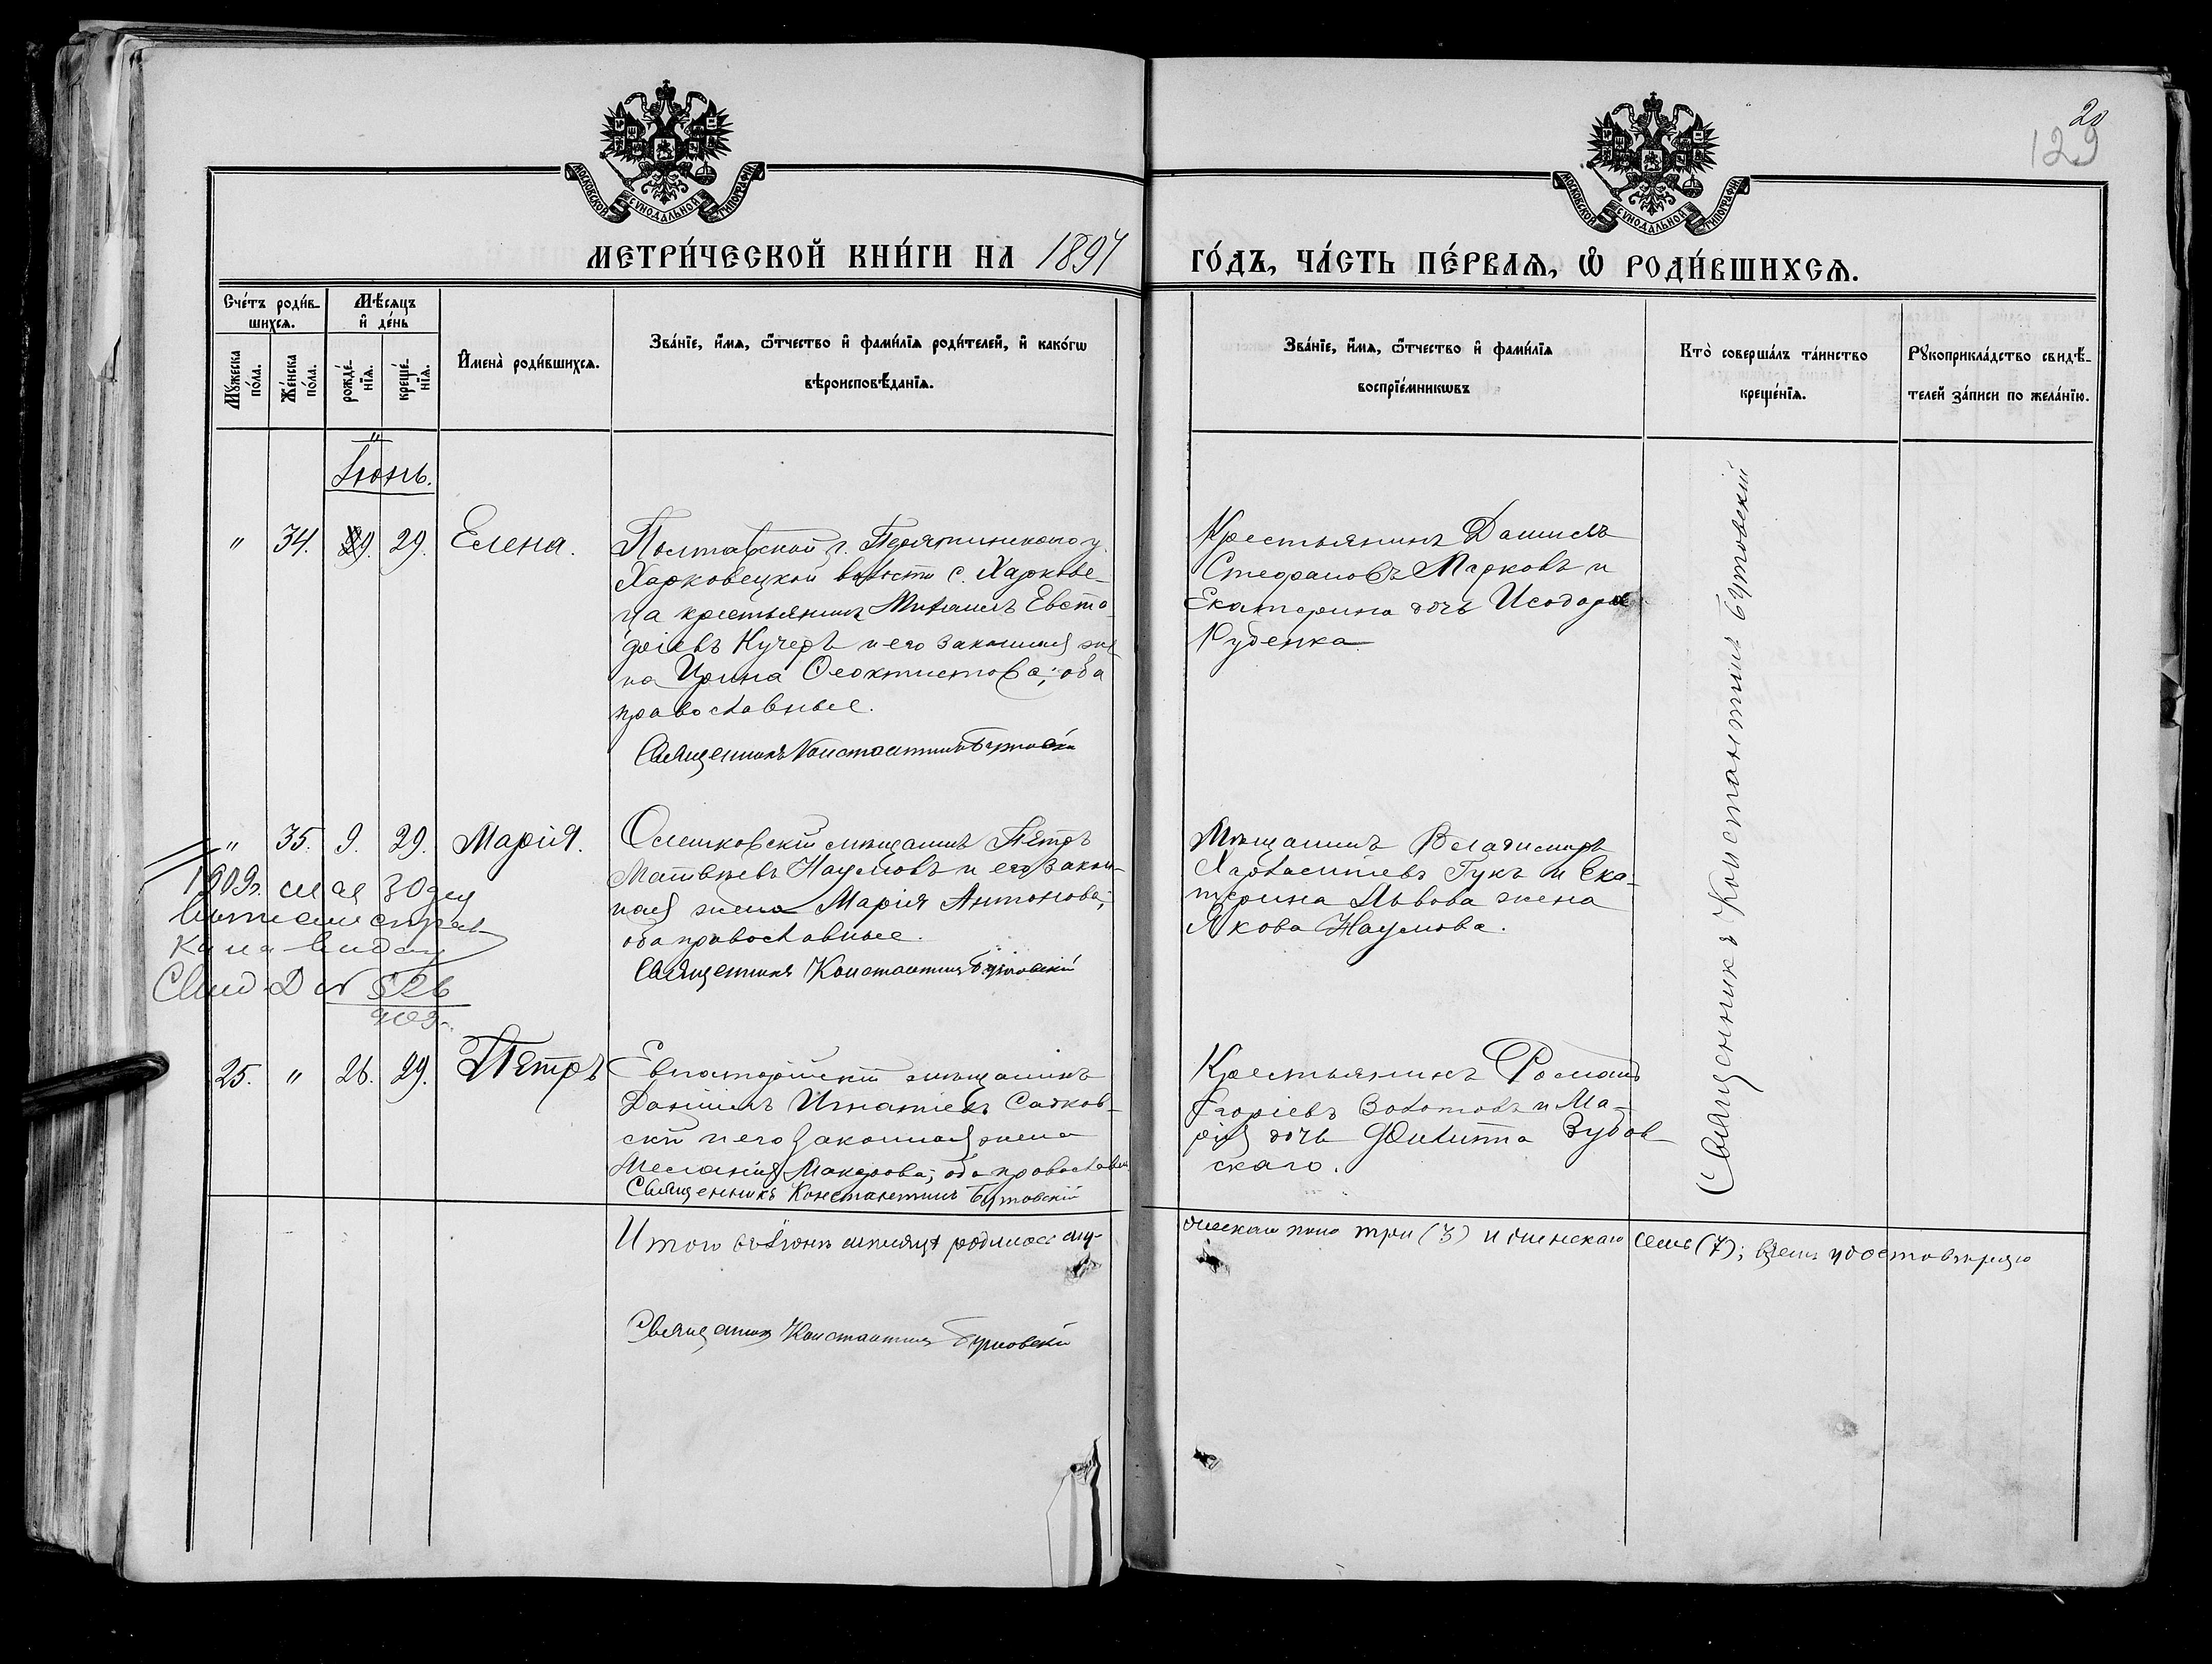 20
129
МОСКОВСКОЙ СѴНОДАЛЬНОЙ ТИПОГРАФІИ
МОСКОВСКОЙ СѴНОДАЛЬНОЙ ТИПОГРАФІИ
МЕТРИ́ЧЕСКОЙ КНИ́ГИ НА 1897 ГО́ДЪ, ЧА́СТЬ ПЕ́РВАЯ, Ѡ РОДИ́ВШИХСЯ.
Сче́тъ роди́в-
шихся.
Мѣ́сяцъ
и҆ де́нь
Мꙋ́жеска по́ла.
Же́нска по́ла.
рожде́-
нїя.
креще́-
нїя.
И҆мена̀ роди́вшихся.
Зва́нїе, и҆́мя, ѻ҆́тчество и҆ фами́лїя роди́телей, и҆ како́гѡ
вѣроисповѣ́данїя.
Зва́нїе, и҆́мя, ѻ҆́тчество и҆ фами́лїя
воспрїе́мникѡвъ
Кто̀ соверша́лъ та́инство
креще́нїя.
Рꙋкоприкла́дство свидѣ́-
телей за́писи по жела́нїю.
Іюнь.
" 34. 9. 29. Елена.
Полтавской г. Пирятинскаго у.
Харковецкой волости с. Харкове-
ца крестьянинъ Михаилъ Евста-
фіевъ Кучеръ и его законная же-
на Ирина Феоктистова; оба
православные.
Священникъ Константинъ Бутовскій
Крестьянинъ Даниилъ
Стефановъ Марковъ и
Екатерина дочь Исидора
Руденка
Священникъ Константинъ Бутовскій
" 35. 9. 29. Марія.
Олешковскій мѣщанинъ Петръ
Матвѣевъ Наумовъ и его закон-
ная жена Марія Антонова;
оба православные.
Священникъ Константинъ Бутовскій
Мѣщанинъ Владимиръ
Гукъ и Ека-
терина Львова жена
Якова Наумова.
1909г. мая 30 дня
справ
ка на выдачу
Свид
909г.
25. " 26. 29. Петръ
Евпаторійскій мѣщанинъ
Даніилъ Игнатіевъ Садков-
скій и его законная жена
Меланія Макарова; оба православн
Священникъ Константинъ Бутовскій
Крестьянинъ Романъ
Георгіевъ Золотовъ и Ма-
рія дочь Филиппа Зубов
скаго.
Итого въ Іюнѣ мѣсяцѣ родилось му-
жескаго пола три (3) и женскаго семь (7); въ чемъ удостовѣряю
Священникъ Константинъ Бутовскій